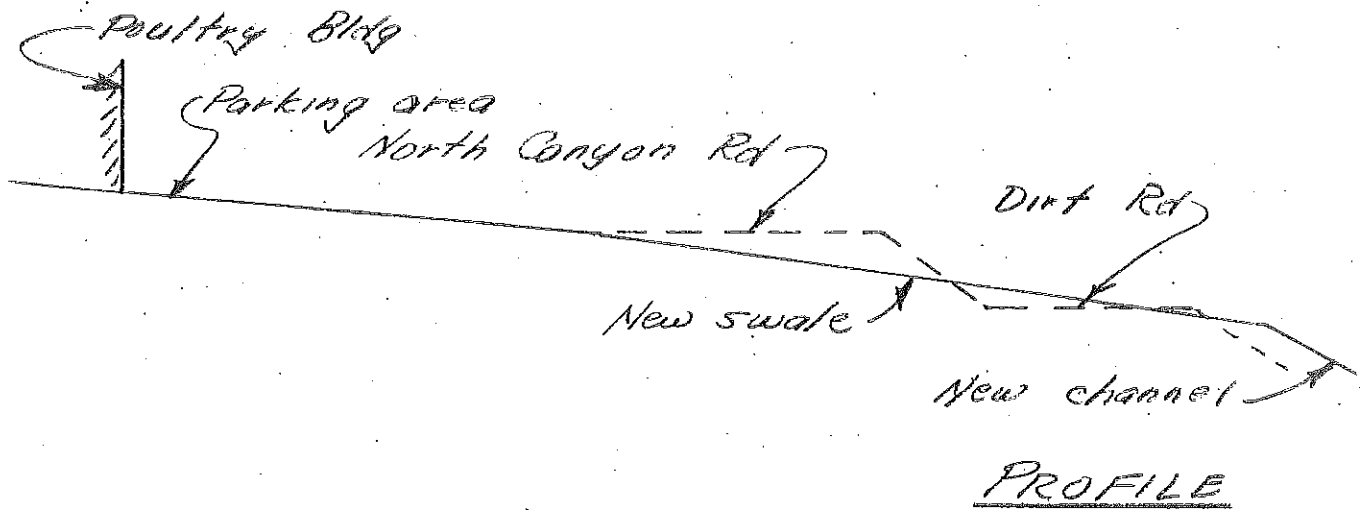 Poultry Bldg
Parking area
North Canyon Rd
Dirt Rd
New swale
New channel
PROFILE